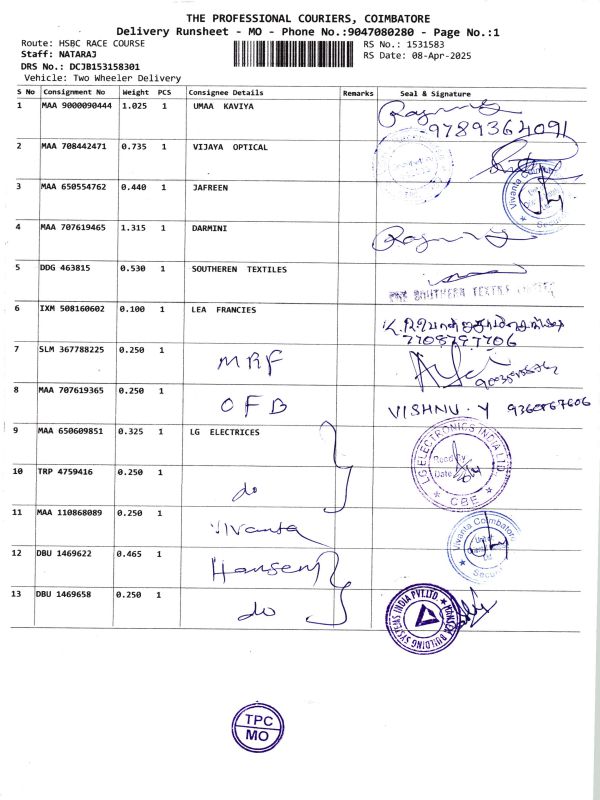 THE PROFESSIONAL COURIERS, COIMBATORE
Delivery Runsheet - MO - Phone No.:9047080280 - Page No.:1
Route: HSBC RACE COURSE
RS No.: 1531583
Staff: NATARAJ
RS Date: 08-Apr-2025
DRS No.: DCJB153158301
Vehicle: Two Wheeler Delivery
S No Consignment No Weight PCS Consignee Details Remarks Seal & Signature
1 MAA 9000090444 1.025 1 UMAA KAVIYA
9789364091
2 MAA 708442471 0.735 1 VIJAYA OPTICAL
3 MAA 650554762 0.440 1 JAFREEN
Vivanta Coimbatore
4 MAA 707619465 1.315 1 DARMINI
5 DDG 463815 0.530 1 SOUTHEREN TEXTILES
SOUTHERN TEXTILES LIMITED
6 IXM 508160602 0.100 1 LEA FRANCIES
7708797706
7 SLM 367788225 0.250 1 MRF
8 MAA 707619365 0.250 1 OFB VISHNU.Y 9360867606
9 MAA 650609851 0.325 1 LG ELECTRICES
LG ELECTRONICS INDIA LTD.
Date
* CBE *
10 TRP 4759416 0.250 1 do
11 MAA 110868089 0.250 1 Vivanta
Vivanta Coimbatore
12 DBU 1469622 0.465 1 Hansem
13 DBU 1469658 0.250 1 do
MONARCH BUILDING SYSTEMS INDIA PVT.LTD.
TPC
MO